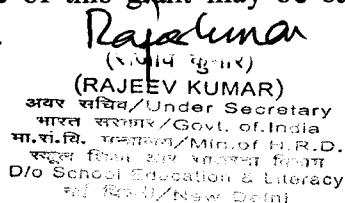 of this grant may be
Rajeev Kumar
(राजीव कुमार)
(RAJEEV KUMAR)
अवर सचिव/Under Secretary
भारत सरकार/Govt. of India
मा.सं.वि. मन्त्रालय/Min. of H.R.D.
स्कूल शिक्षा और साक्षरता विभाग
D/o School Education & Literacy
नई दिल्ली/New Delhi